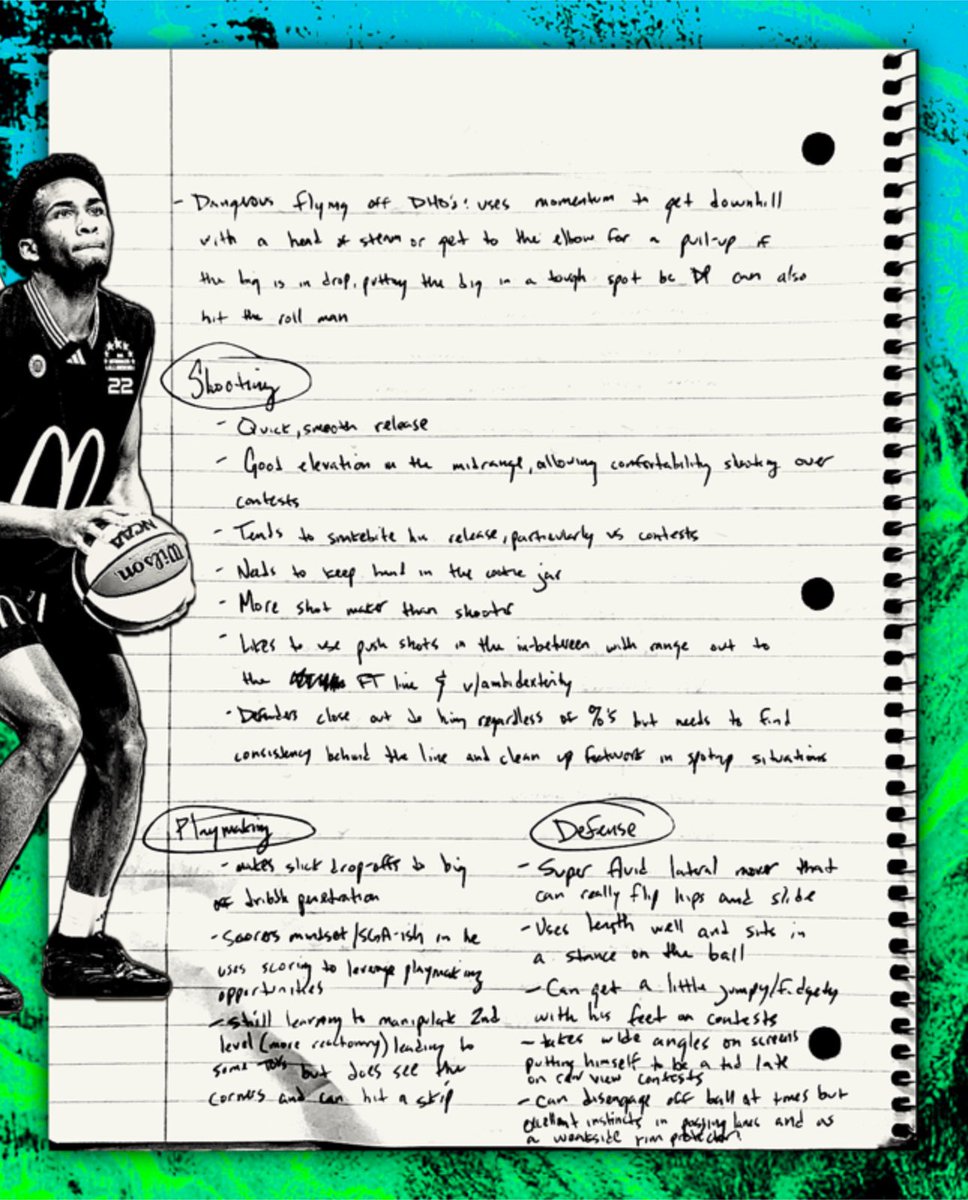 - Dangerous flying off DHO's: uses momentum to get downhill
with a head of steam or get to the elbow for a pull-up if
the big is in drop, putting the big in a tough spot bc DP can also
hit the roll man
Shooting
- Quick, smooth release
- Good elevation in the midrange, allowing comfortability shooting over
contests
- Tends to snakebite his release, particularly vs contests
- Needs to keep hand in the cookie jar
- More shot maker than shooter
- Likes to use push shots in the in-between with range out to
the FT line & w/ambidexterity
- Defenders close out to him regardless of %'s but needs to find
consistency behind the line and clean up footwork in spotup situations
Playmaking
- makes slick drop-offs to big
off dribble penetration
- Scorers mindset/SGA-ish in he
uses scoring to leverage playmaking
opportunities
- still learning to manipulate 2nd
level (more reactionary) leading to
some TO's but does see the
corners and can hit a skip
Defense
- Super fluid lateral mover that
can really flip hips and slide
- Uses length well and sits in
a stance on the ball
- Can get a little jumpy/fidgety
with his feet on contests
- takes wide angles on screens
putting himself to be a tad late
on rear view contests
- Can disengage off ball at times but
excellent instincts in passing lanes and as
a weakside rim protector
22
NCAA
Wilson